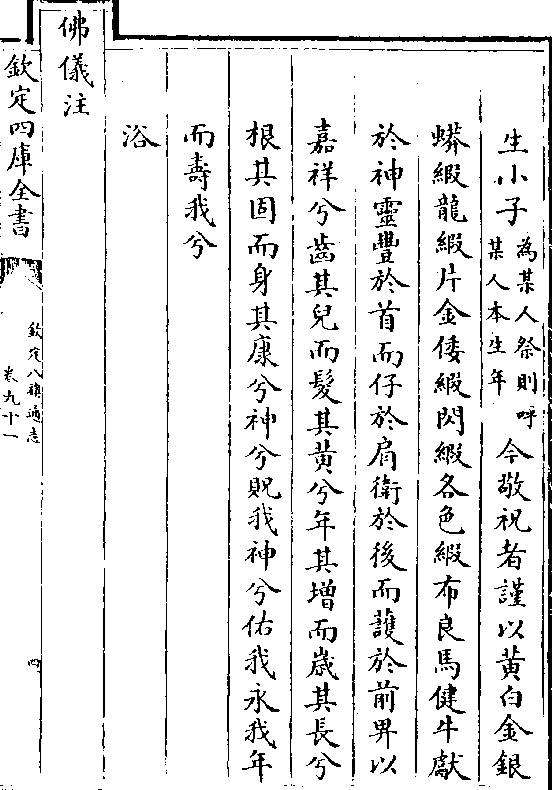 生小子為某人祭則呼某人本生年今敬祝者謹以黃白金銀
蟒緞龍緞片金倭緞閃緞各色緞布良馬健牛獻
於神靈豐於首而仔於肩衛於後而護於前畀以
嘉祥兮齒其兒而髮其黃兮年其增而歲其長兮
根其固而身其康兮神兮貺我神兮佑我永我年
而壽我兮
浴
佛儀注
欽定四庫全書
欽定八旗通志
卷九十一
四